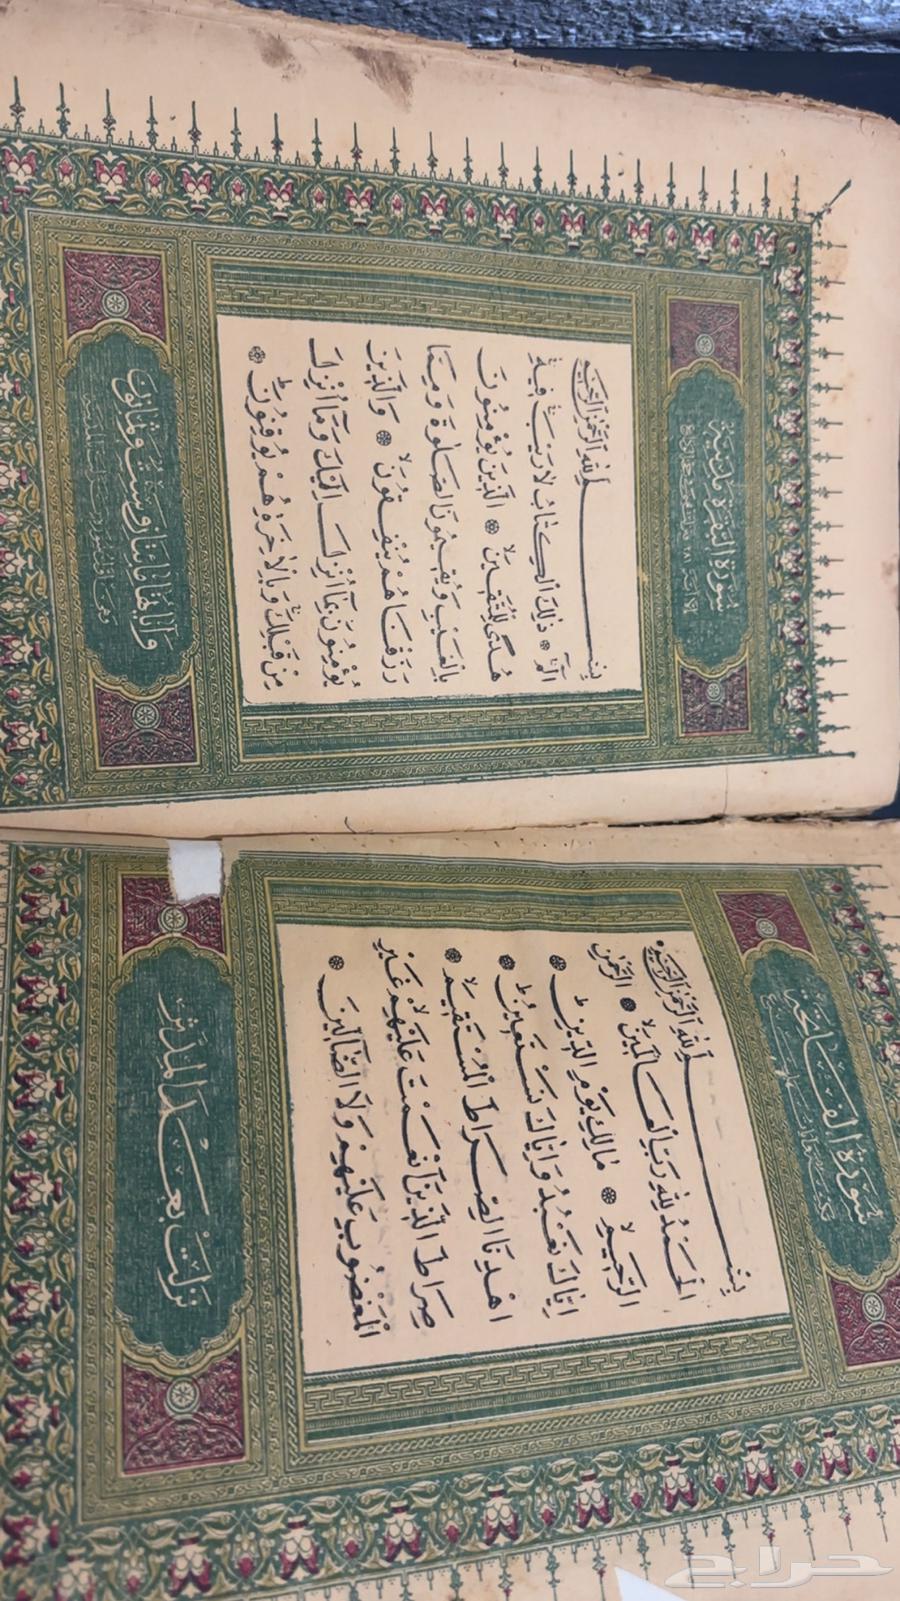 سورة الفاتحة
بِسْمِ اللهِ الرَّحْمٰنِ الرَّحِيمِ
اَلْحَمْدُ لِلهِ رَبِّ الْعَالَمِينَ ۙ اَلرَّحْمٰنِ
الرَّحِيمِ ۙ مَالِكِ يَوْمِ الدِّينِ ۜ
اِيَّاكَ نَعْبُدُ وَاِيَّاكَ نَسْتَعِينُ ۜ
اِهْدِنَا الصِّرَاطَ الْمُسْتَقِيمَ ۙ
صِرَاطَ الَّذِينَ اَنْعَمْتَ عَلَيْهِمْ ۙ غَيْرِ
الْمَغْضُوبِ عَلَيْهِمْ وَلَا الضَّالِّينَ
نزلت بعد المدثر
سورة البقرة مدنية
بِسْمِ اللهِ الرَّحْمٰنِ الرَّحِيمِ
الٓمٓ ذٰلِكَ الْكِتَابُ لَا رَيْبَ ۛ فِيهِ ۛ
هُدًى لِلْمُتَّقِينَ ۙ اَلَّذِينَ يُؤْمِنُونَ
بِالْغَيْبِ وَيُقِيمُونَ الصَّلٰوةَ وَمِمَّا
رَزَقْنَاهُمْ يُنْفِقُونَ ۙ وَالَّذِينَ
يُؤْمِنُونَ بِمَا اُنْزِلَ اِلَيْكَ وَمَا اُنْزِلَ
مِنْ قَبْلِكَ ۚ وَبِالْاٰخِرَةِ هُمْ يُوقِنُونَ ۜ
وآياتها مائتان وست وثمانون
حراج